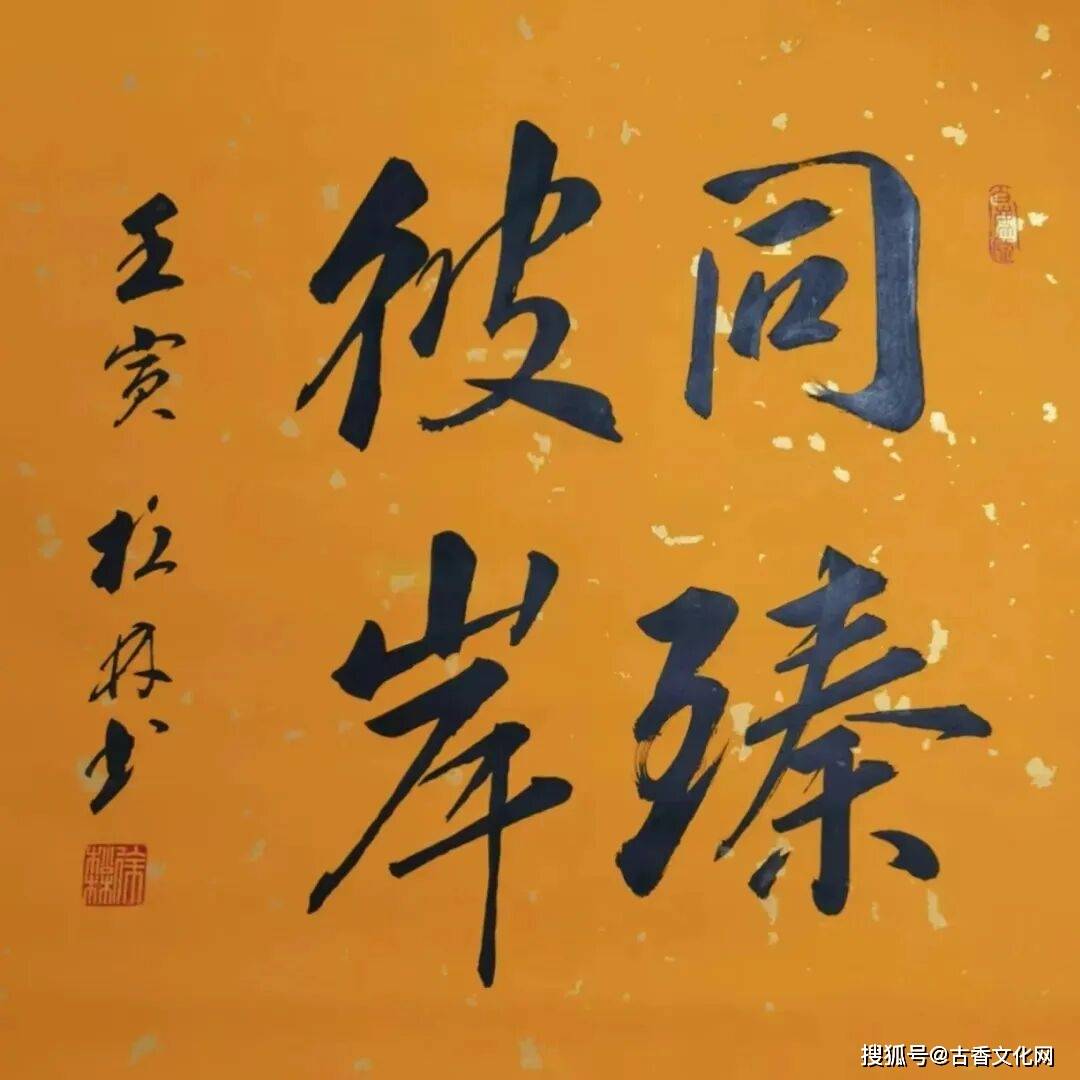 同臻
彼岸
壬寅 书
搜狐号@古香文化网